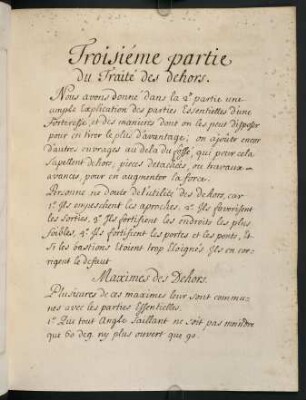 Troisiéme partie
du Traité des dehors.
Nous avons donné dans la 2e partie une
ample Explication des parties Essentielles d'une
Forteresse, et des manieres dont on les peut disposer
pour en tirer le plus d'avantage; on ajoûte encor
d'autres ouvrages au dela du fossé, qui pour cela
s'apellent dehors, pieces detachées, ou travaux
avancés, pour en augmenter la force.
Personne ne doute de l'utilité des dehors, car
1º Ils empeschent les aproches. 2º Ils favorisent
les sorties, 3º Ils fortifient les endroits les plus
foibles, 4º Ils fortifient les portes et les ponts, Et
Si les bastions Etoient trop Eloignés Ils en cor-
rigent le defaut.
Maximes des Dehors.
Plusieures de ces maximes leur sont commu-
nes avec les parties Essentielles.
1º Que tout Angle Saillant ne soit pas moindre
que 60 deg. ny plus ouvert que 90.